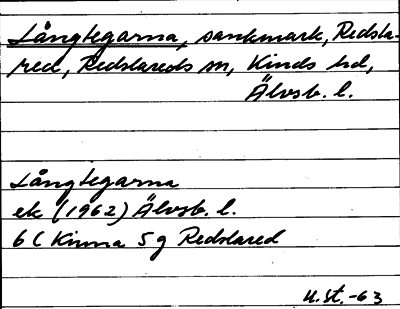 Långtegarna, sankmark, Redsla-
red, Redslareds sn, Kinds hd,
Älvsb. l.
Långtegarna
ek (1962) Älvsb. l.
6 C Kinna 5 g Redslared
U.St.-63